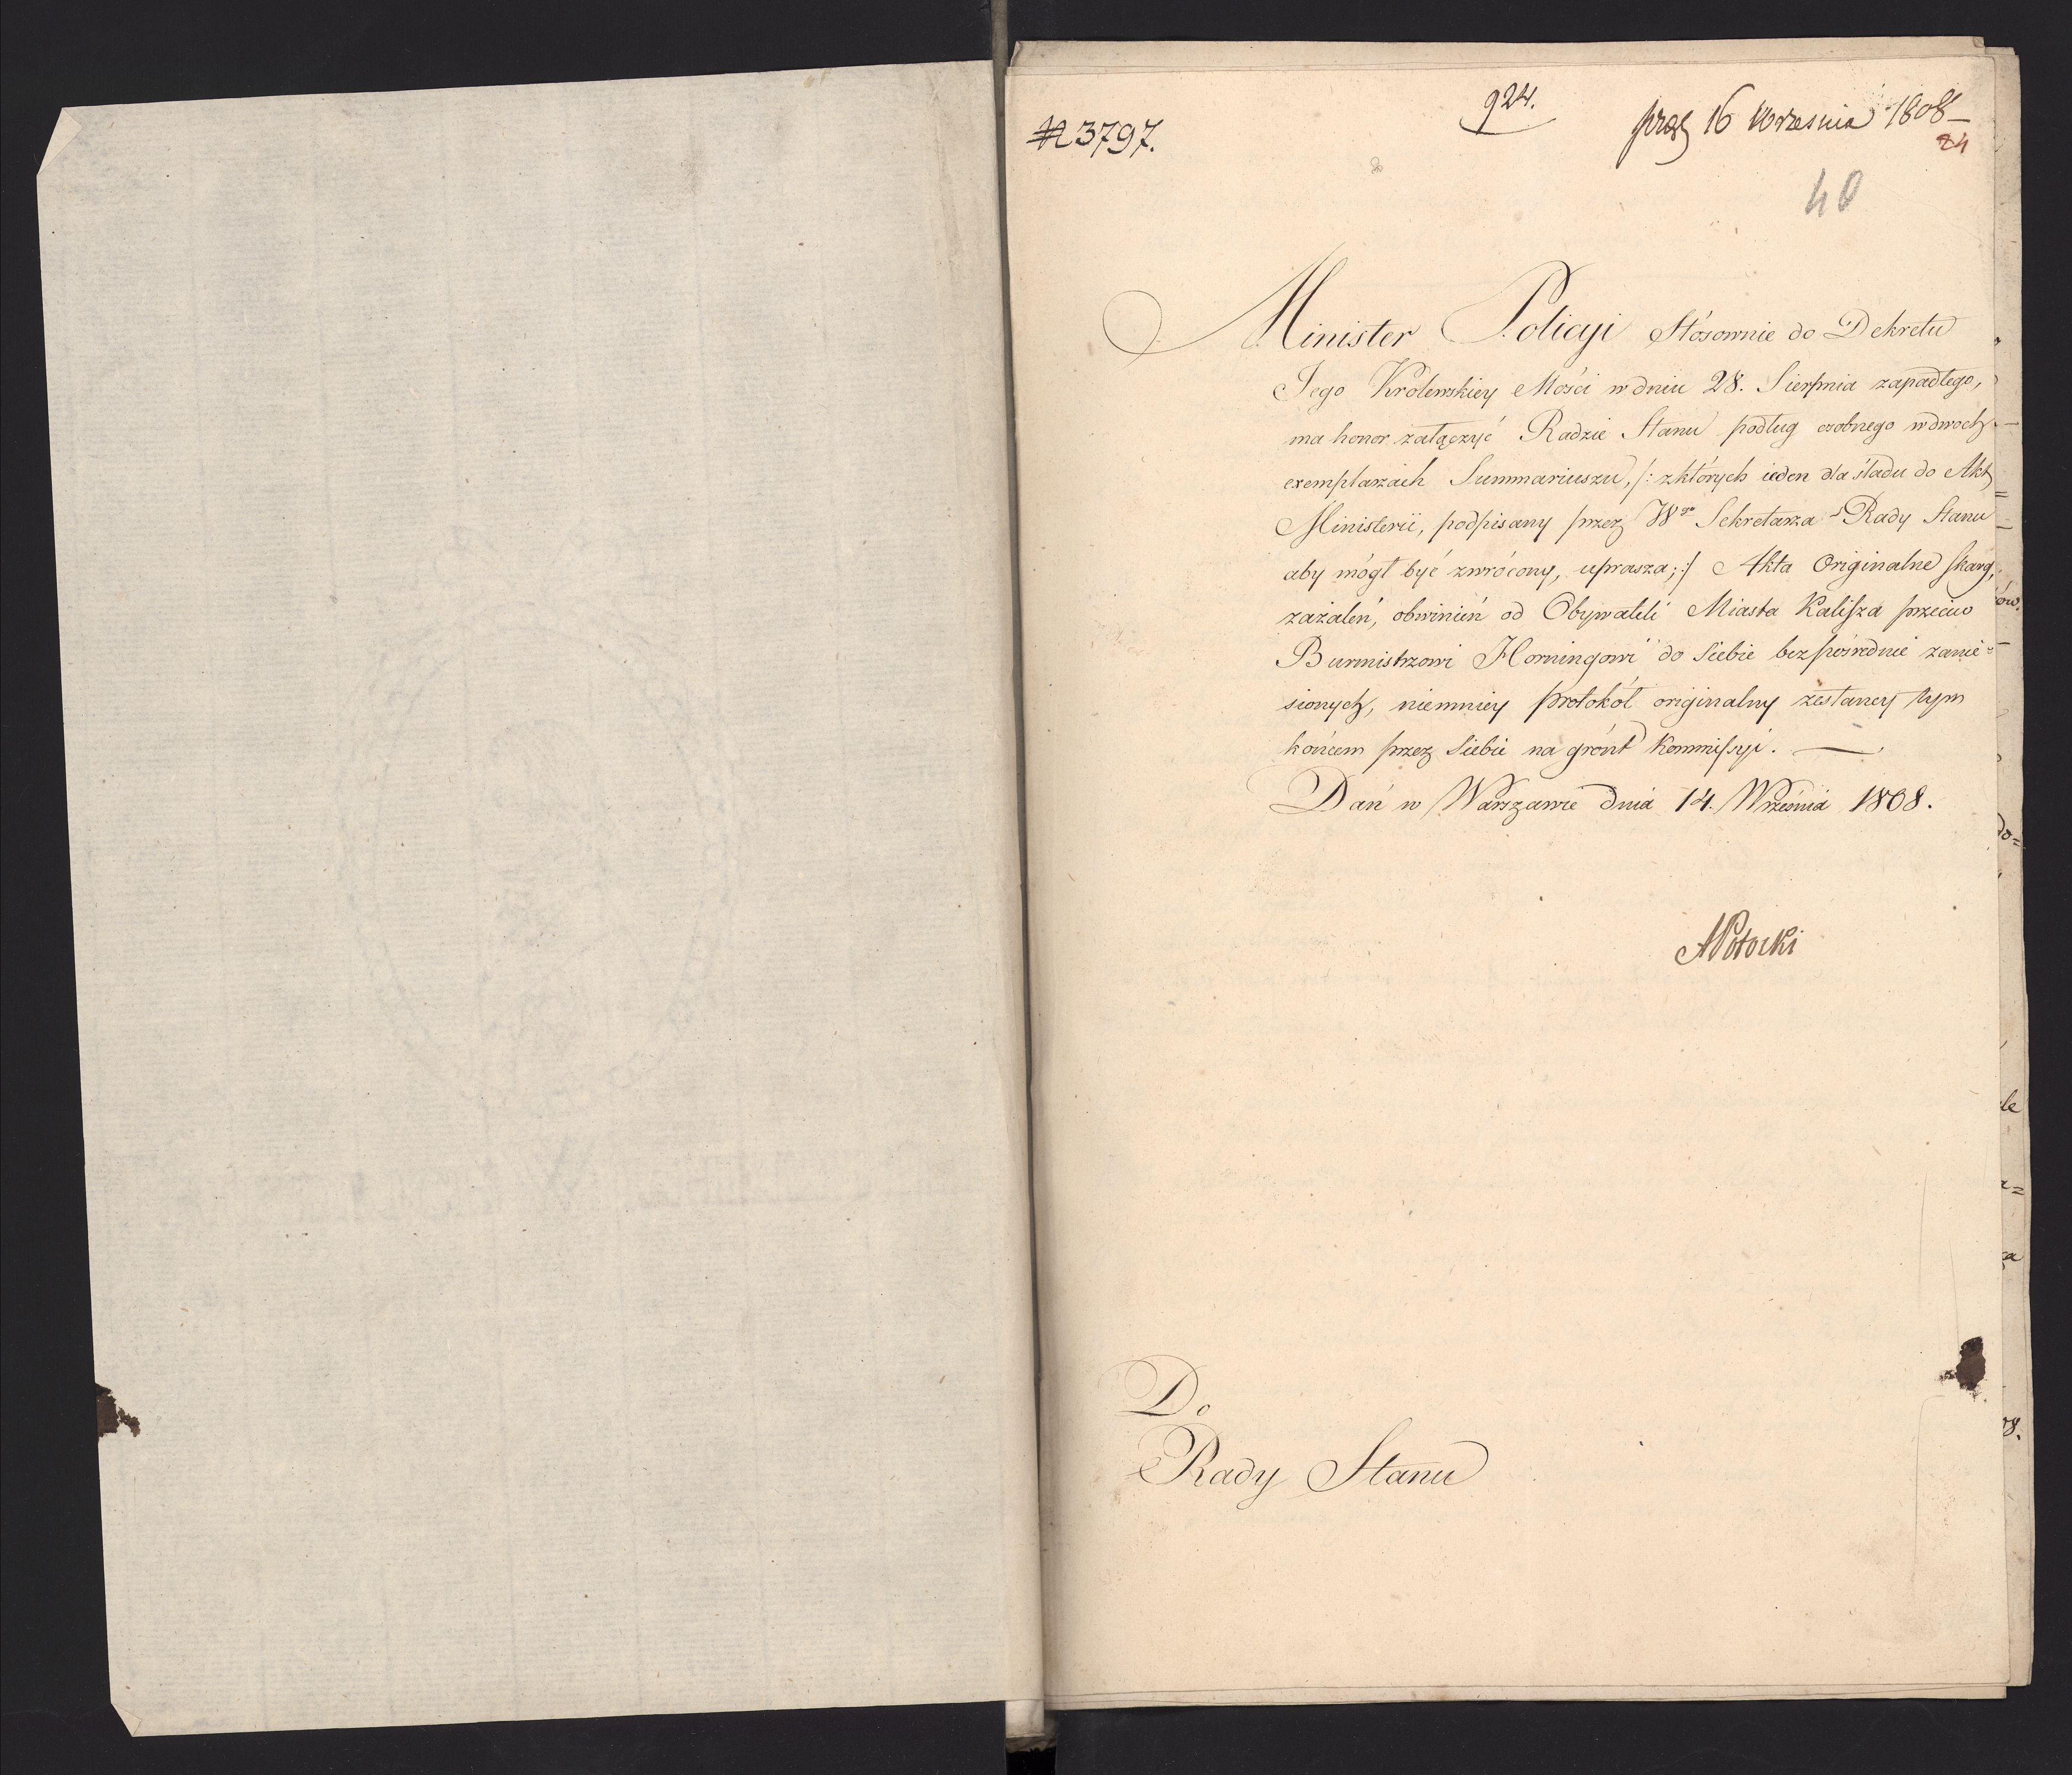 N 3797.
924.
prez 16 Wrzesnia 1808
24
40
Minister Policyi Stósownie do Dekretu
Jego Królewskiey Mości w dniu 28. Sierpnia zapadłego,
ma honor załączyć Radzie Stanu podług osobnego w dwoch
exemplarzach Summariuszu, /: z których ieden dla śladu do Akt
Ministerii, podpisany przez Wgo Sekretarza Rady Stanu
aby mógł być zwrócony, uprasza; :/ Akta Originalne skarg,
zażaleń, obwinień od Obywateli Miasta Kalisza przeciw
Burmistrzowi Horningowi do Siebie bezpośrednie zanie-
sionych, niemniey protokół originalny zesłaney tym
końcem przez Siebie na grónt Kommissyi. —
Dań w Warszawie dnia 14. Września 1808.
APotocki
Do
Rady Stanu